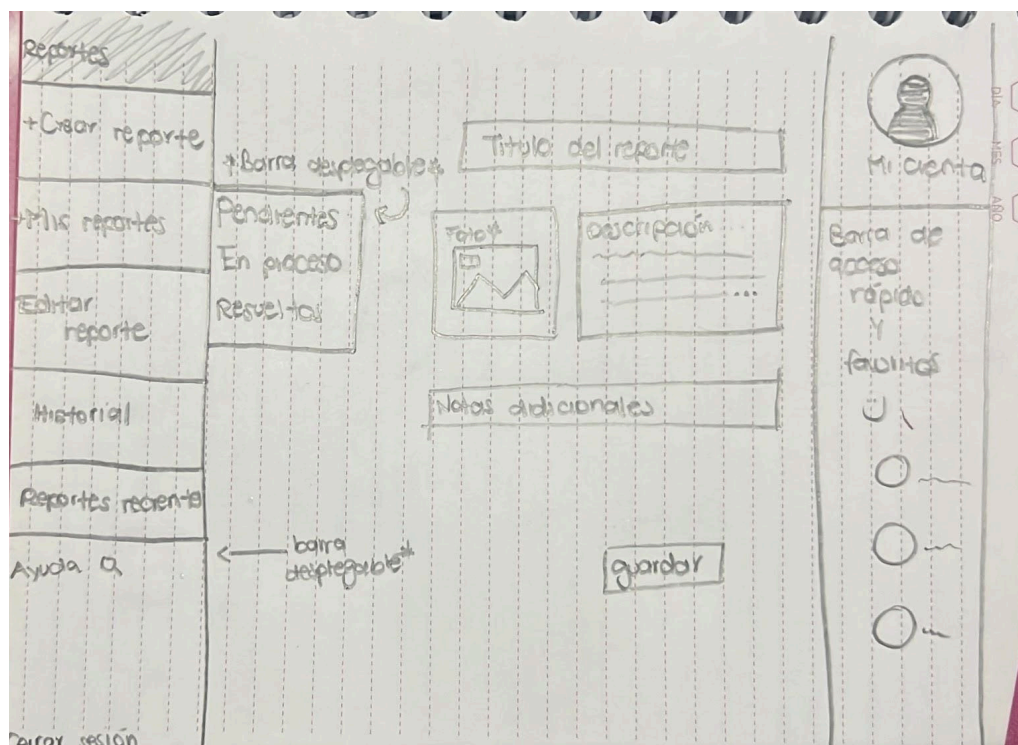 Reportes
+Crear reporte
+Mis reportes
Editar
reporte
Historial
Reportes reciente
Ayuda
Cerrar sesión
*Barra desplegable*
Pendientes
En proceso
Resueltos
barra
desplegable*
Titulo del reporte
Foto*
Descripción
...
Notas adicionales
guardar
Mi cuenta
Barra de
acceso
rápido
y
favoritos
DÍA
MES
AÑO